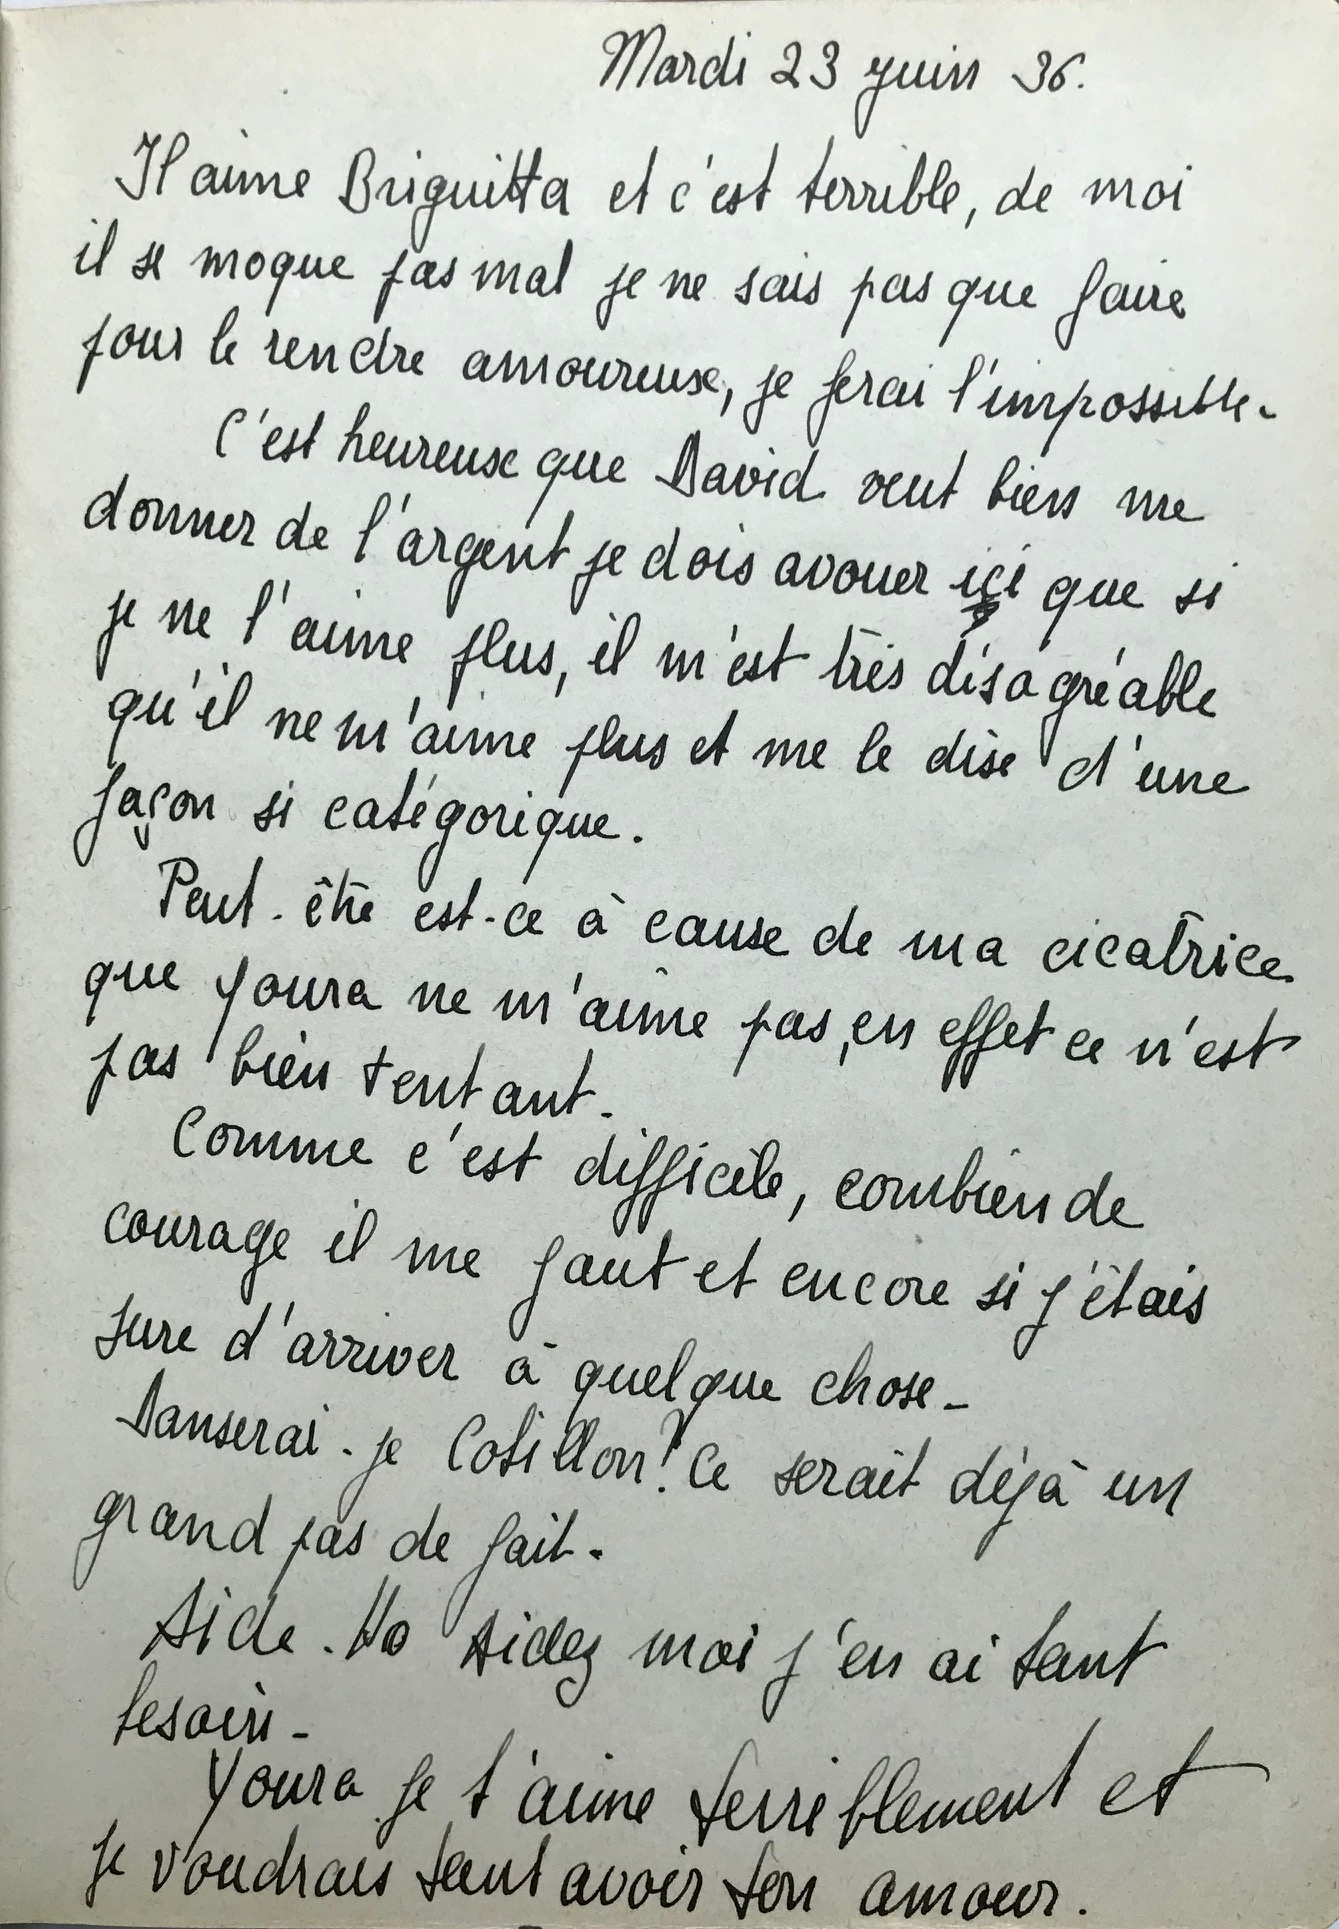 Mardi 23 juin 36.
Il aime Briguitta et c'est terrible, de moi
il se moque pas mal je ne sais pas que faire
pour le rendre amoureuse, je ferai l'impossible.
C'est heureuse que David veut bien me
donner de l'argent je dois avouer içi que si
je ne l'aime plus, il m'est très désagréable
qu'il ne m'aime plus et me le dise d'une
façon si catégorique.
Peut-être est-ce à cause de ma cicatrice
que Youra ne m'aime pas, en effet ce n'est
pas bien tentant.
Comme c'est difficile, combien de
courage il me faut et encore si j'étais
sure d'arriver à quelque chose-
Danserai-je Cotillon? Ce serait déjà un
grand pas de fait.
Aidez moi j'en ai tant
besoin-
Youra je t'aime terriblement et
je voudrais tant avoir ton amour.